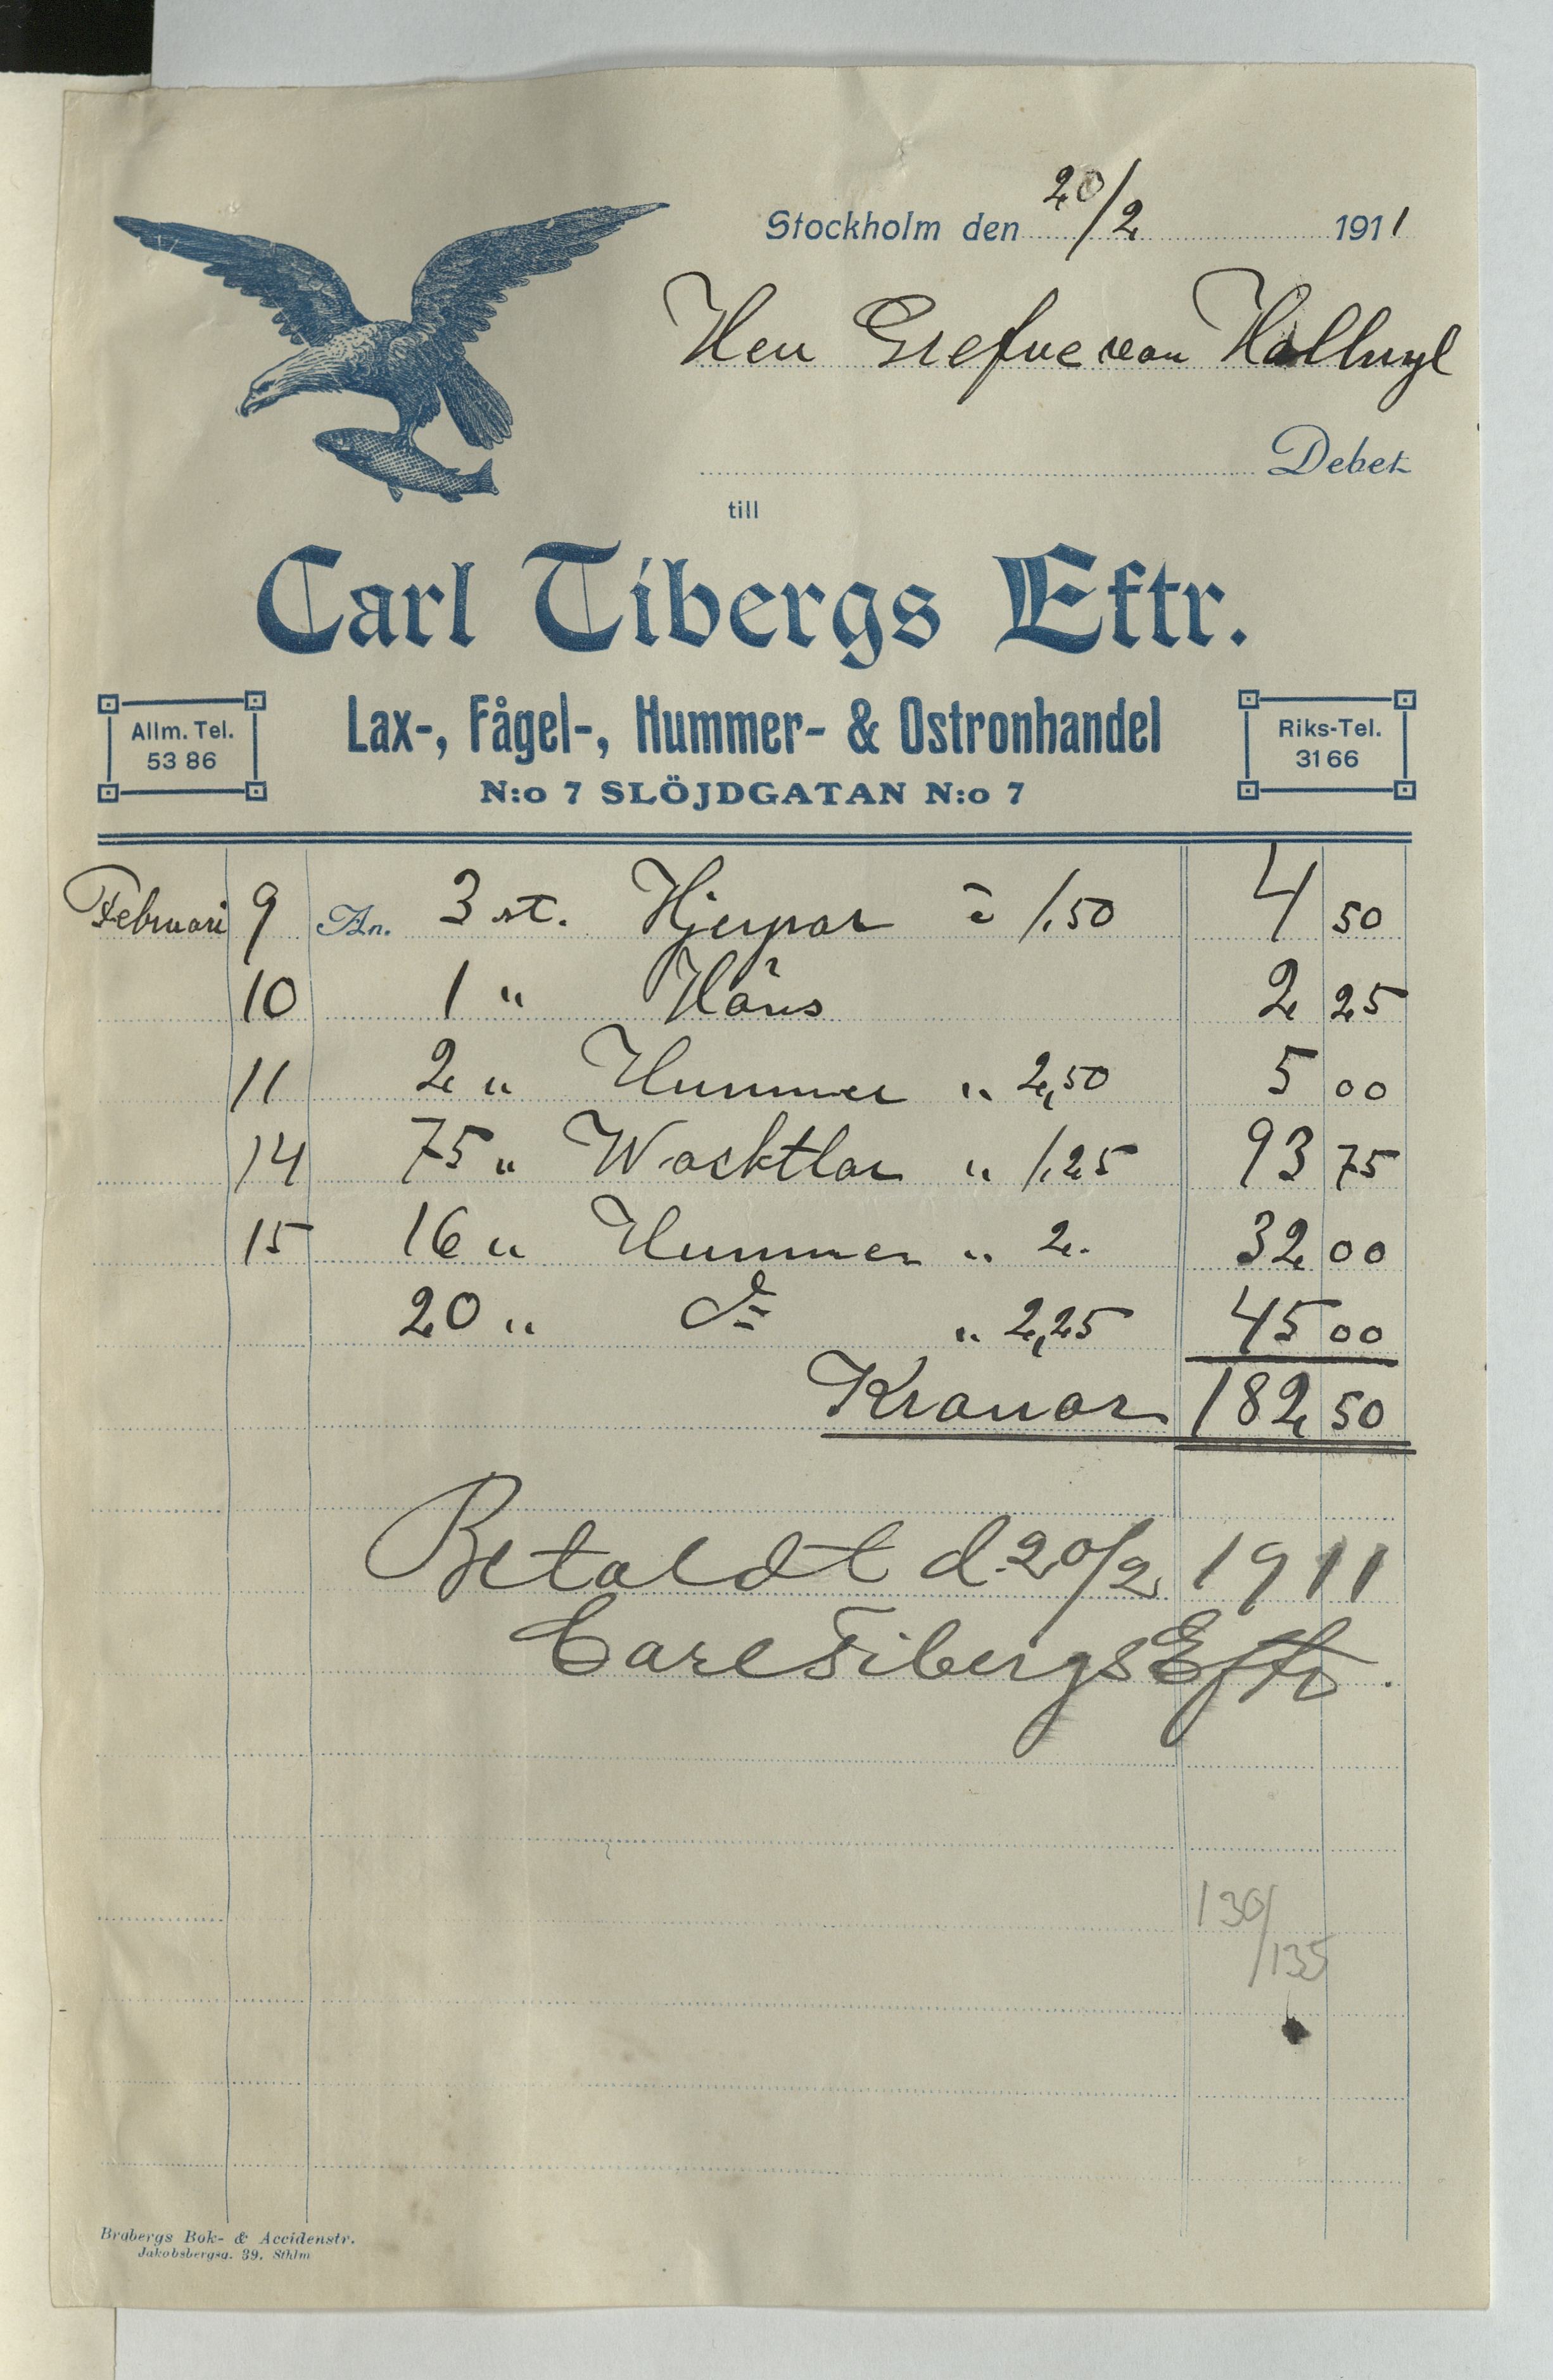 Stockholm den 20/2 1911
Herr Grefve von Hallwyl
Debet
till
Carl Tibergs Eftr.
Allm. Tel.
53 86
Lax-, Fågel-, Hummer- & Ostronhandel
N:o 7 SLÖJDGATAN N:o 7
Riks-Tel.
31 66
Februari 9 An. 3 st. Hjerpar à 1,50 4 50
10 1 " Höns 2 25
11 2 " Hummer " 2,50 5 00
14 75 " Wacktlar " 1,25 93 75
15 16 " Hummer " 2. 32 00
20 " do " 2,25 45 00
Kronor 182 50
Betaldt d. 20/2 1911
Carl Tibergs Eftr.
130/
/135
Brobergs Bok- & Accidenstr.
Jakobsbergsg. 39. Sthlm